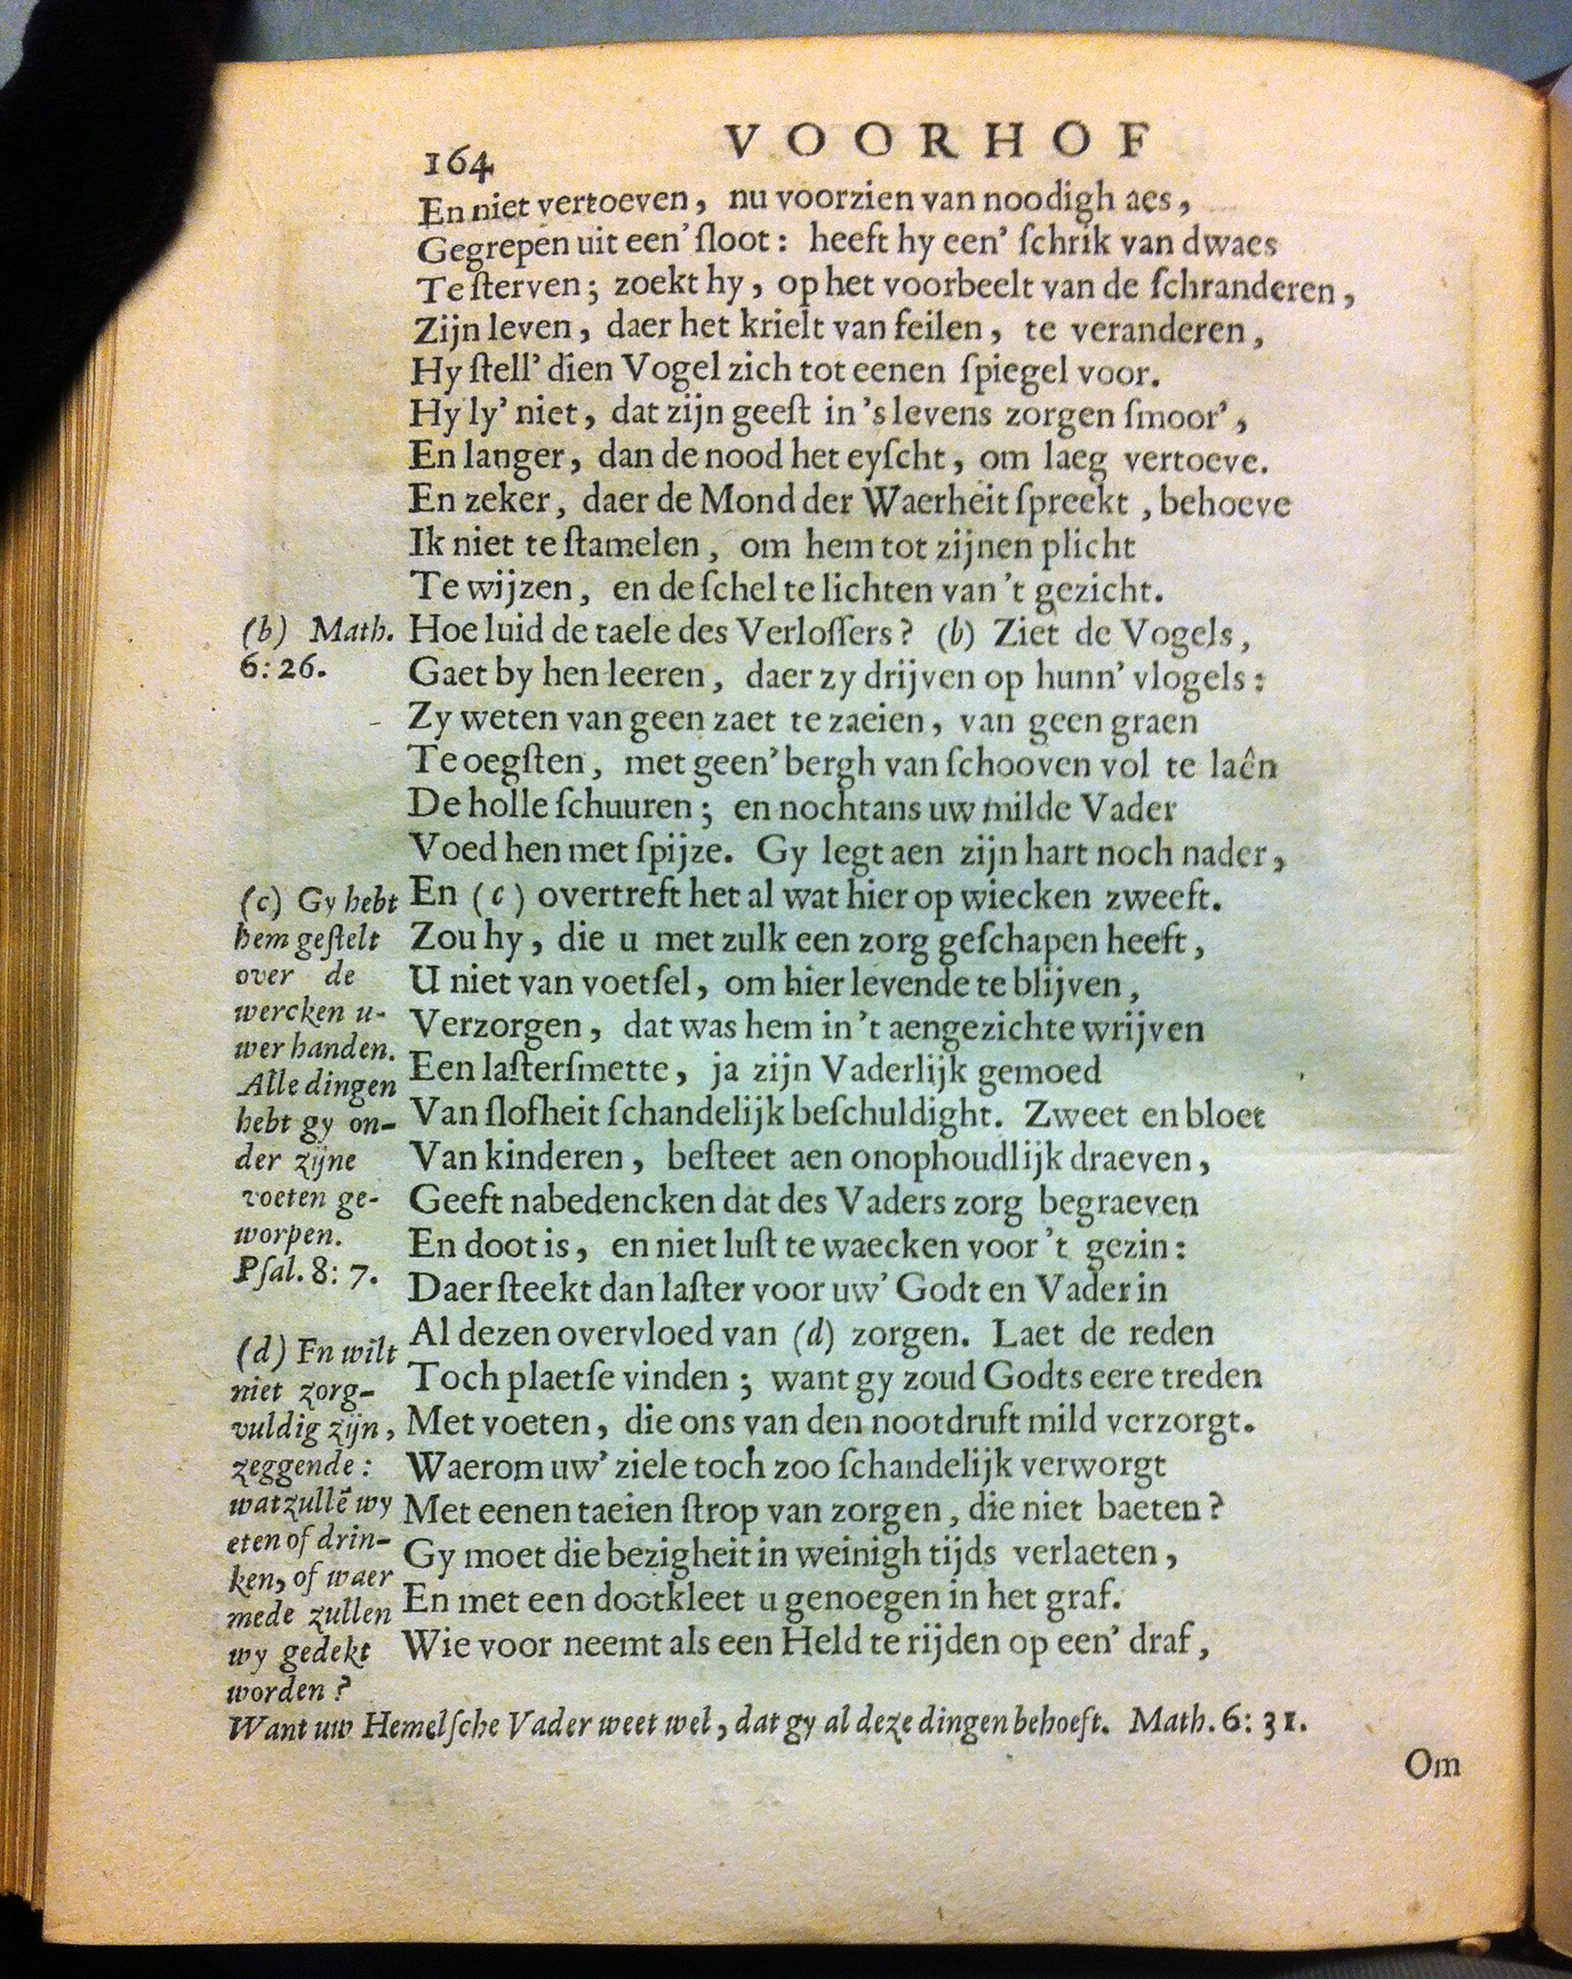 164
VOORHOF
En niet vertoeven, nu voorzien van noodigh aes,
Gegrepen uit een' ſloot: heeft hy een' ſchrik van dwaes
Te ſterven; zoekt hy, op het voorbeelt van de ſchranderen,
Zijn leven, daer het krielt van feilen, te veranderen,
Hy ſtell' dien Vogel zich tot eenen ſpiegel voor.
Hy ly' niet, dat zijn geeſt in 's levens zorgen ſmoor',
En langer, dan de nood het eyſcht, om laeg vertoeve.
En zeker, daer de Mond der Waerheit ſpreekt, behoeve
Ik niet te ſtamelen, om hem tot zijnen plicht
Te wijzen, en de ſchel te lichten van 't gezicht.
Hoe luid de taele des Verloſſers? (b) Ziet de Vogels,
Gaet by hen leeren, daer zy drijven op hunn' vlogels:
Zy weten van geen zaet te zaeien, van geen graen
Te oegſten, met geen' bergh van ſchooven vol te laên
De holle ſchuuren; en nochtans uw milde Vader
Voed hen met ſpijze. Gy legt aen zijn hart noch nader,
En (c) overtreft het al wat hier op wiecken zweeft.
Zou hy, die u met zulk een zorg geſchapen heeft,
U niet van voetſel, om hier levende te blijven,
Verzorgen, dat was hem in 't aengezichte wrijven
Een laſterſmette, ja zijn Vaderlijk gemoed
Van ſlofheit ſchandelijk beſchuldight. Zweet en bloet
Van kinderen, beſteet aen onophoudlijk draeven,
Geeft nabedencken dat des Vaders zorg begraeven
En doot is, en niet luſt te waecken voor 't gezin:
Daer ſteekt dan laſter voor uw' Godt en Vader in
Al dezen overvloed van (d) zorgen. Laet de reden
Toch plaetſe vinden; want gy zoud Godts eere treden
Met voeten, die ons van den nootdruft mild verzorgt.
Waerom uw' ziele toch zoo ſchandelijk verworgt
Met eenen taeien ſtrop van zorgen, die niet baeten?
Gy moet die bezigheit in weinigh tijds verlaeten,
En met een dootkleet u genoegen in het graf.
Wie voor neemt als een Held te rijden op een' draf,
(b) Math.
6: 26.
(c) Gy hebt
hem geſtelt
over de
wercken u-
wer handen.
Alle dingen
hebt gy on-
der zijne
voeten ge-
worpen.
Pſal. 8: 7.
(d) En wilt
niet zorg-
vuldig zijn,
zeggende:
wat zullē wy
eten of drin-
ken, of waer
mede zullen
wy gedekt
worden?
Want uw Hemelſche Vader weet wel, dat gy al deze dingen behoeft. Math. 6: 31.
Om